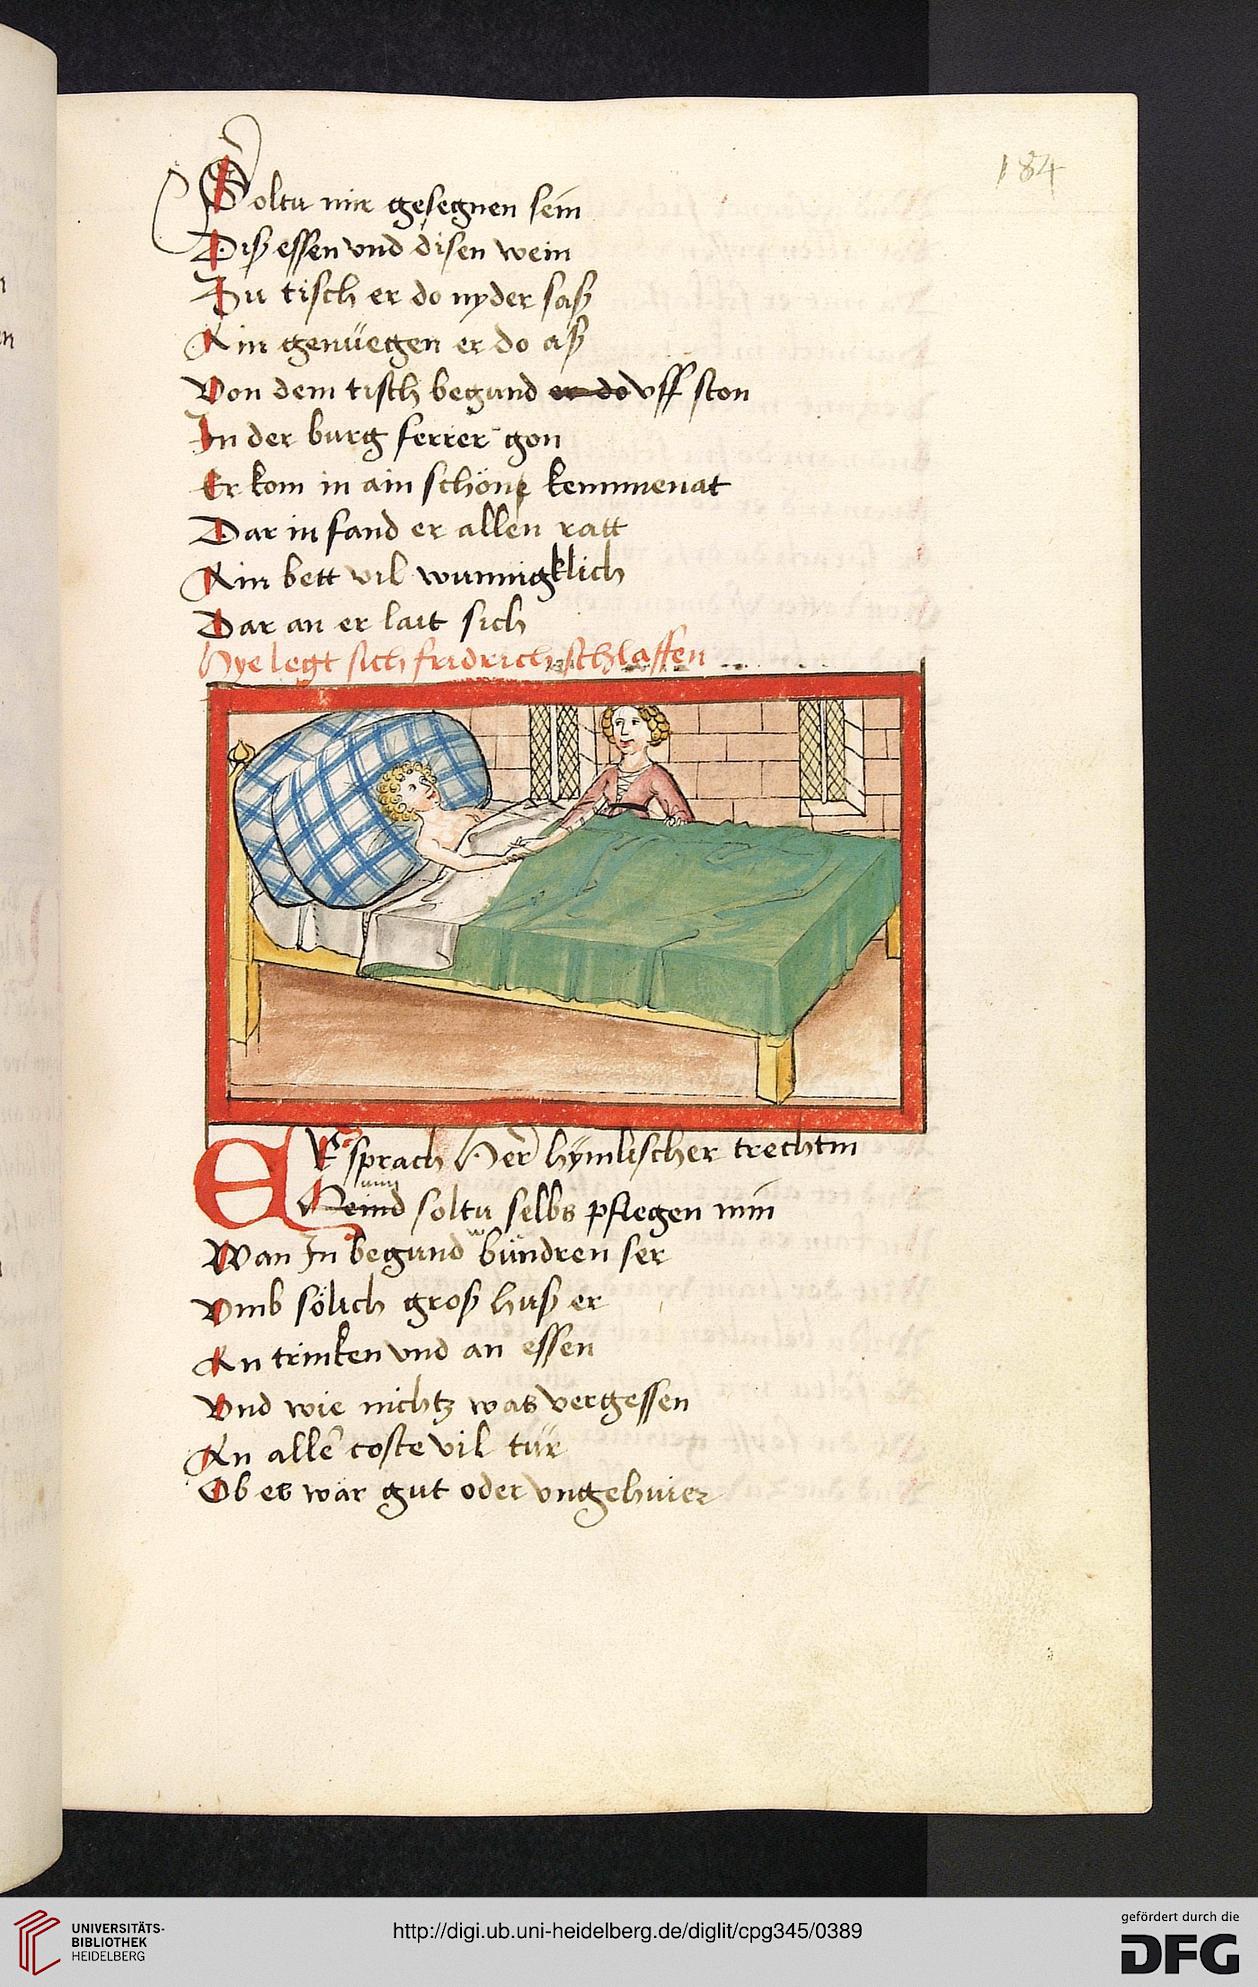 184
Soltu mir gesegnen sein
Diß essen vnd disen wein
Zu tisch er do nyder saß
Ain genüegen er do aß
Von dem tisch begund er do vff ston
In der burg ferrer gon
Er kom in ain schöne kemmenat
Dar in fand er allen ratt
Ain bett vil wunnigklich
Dar an er lait sich
Hye legt sich fridrich schlaffen
Er sprach Her hÿmlischer trechtin
Meind nun soltu selbs pflegen min
Wan In begund wundren ser
Vmb sölich groß huß er
An trinken vnd an essen
Vnd wie nichtz was vergessen
An aller coste vil tür
Ob es wär gut oder vngehuier
UNIVERSITÄTS-
BIBLIOTHEK
HEIDELBERG
http://digi.ub.uni-heidelberg.de/diglit/cpg345/0389
gefördert durch die
DFG